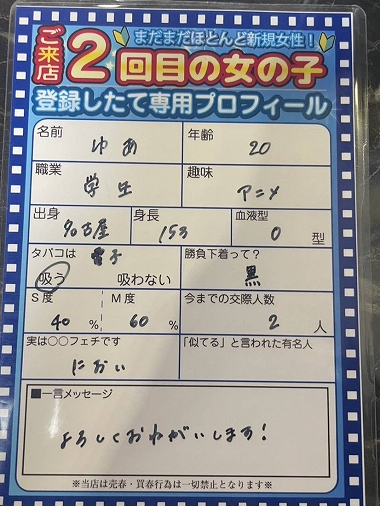 まだまだほとんど新規女性！
ご来店
2回目の女の子
登録したて専用プロフィール
名前 ゆあ 年齢 20
職業 学生 趣味 アニメ
出身 名古屋 身長 153 血液型 O 型
タバコは 電子 勝負下着って？
吸う 吸わない 黒
S度 M度 今までの交際人数
40 % 60 % 2 人
実は〇〇フェチです 「似てる」と言われた有名人
におい
■一言メッセージ
よろしくおねがいします!
※当店は売春・買春行為は一切禁止となります※